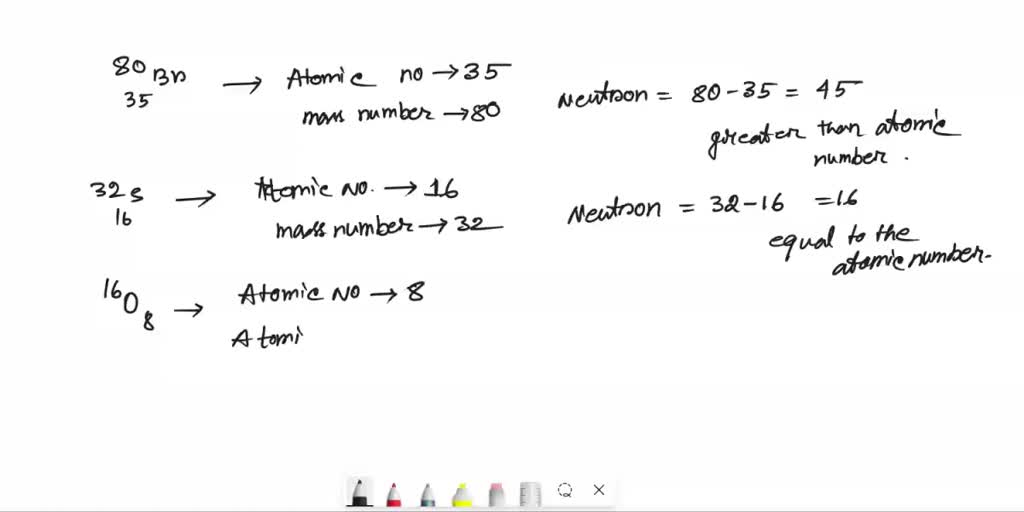 80 Br → Atomic no → 35
35
mass number → 80
Neutron = 80 - 35 = 45
greater than atomic
number.
32 S → Atomic NO. → 16
16
mass number → 32
Neutron = 32 - 16 = 16
equal to the
atomic number.
16 O 8 → Atomic NO → 8
Atomi